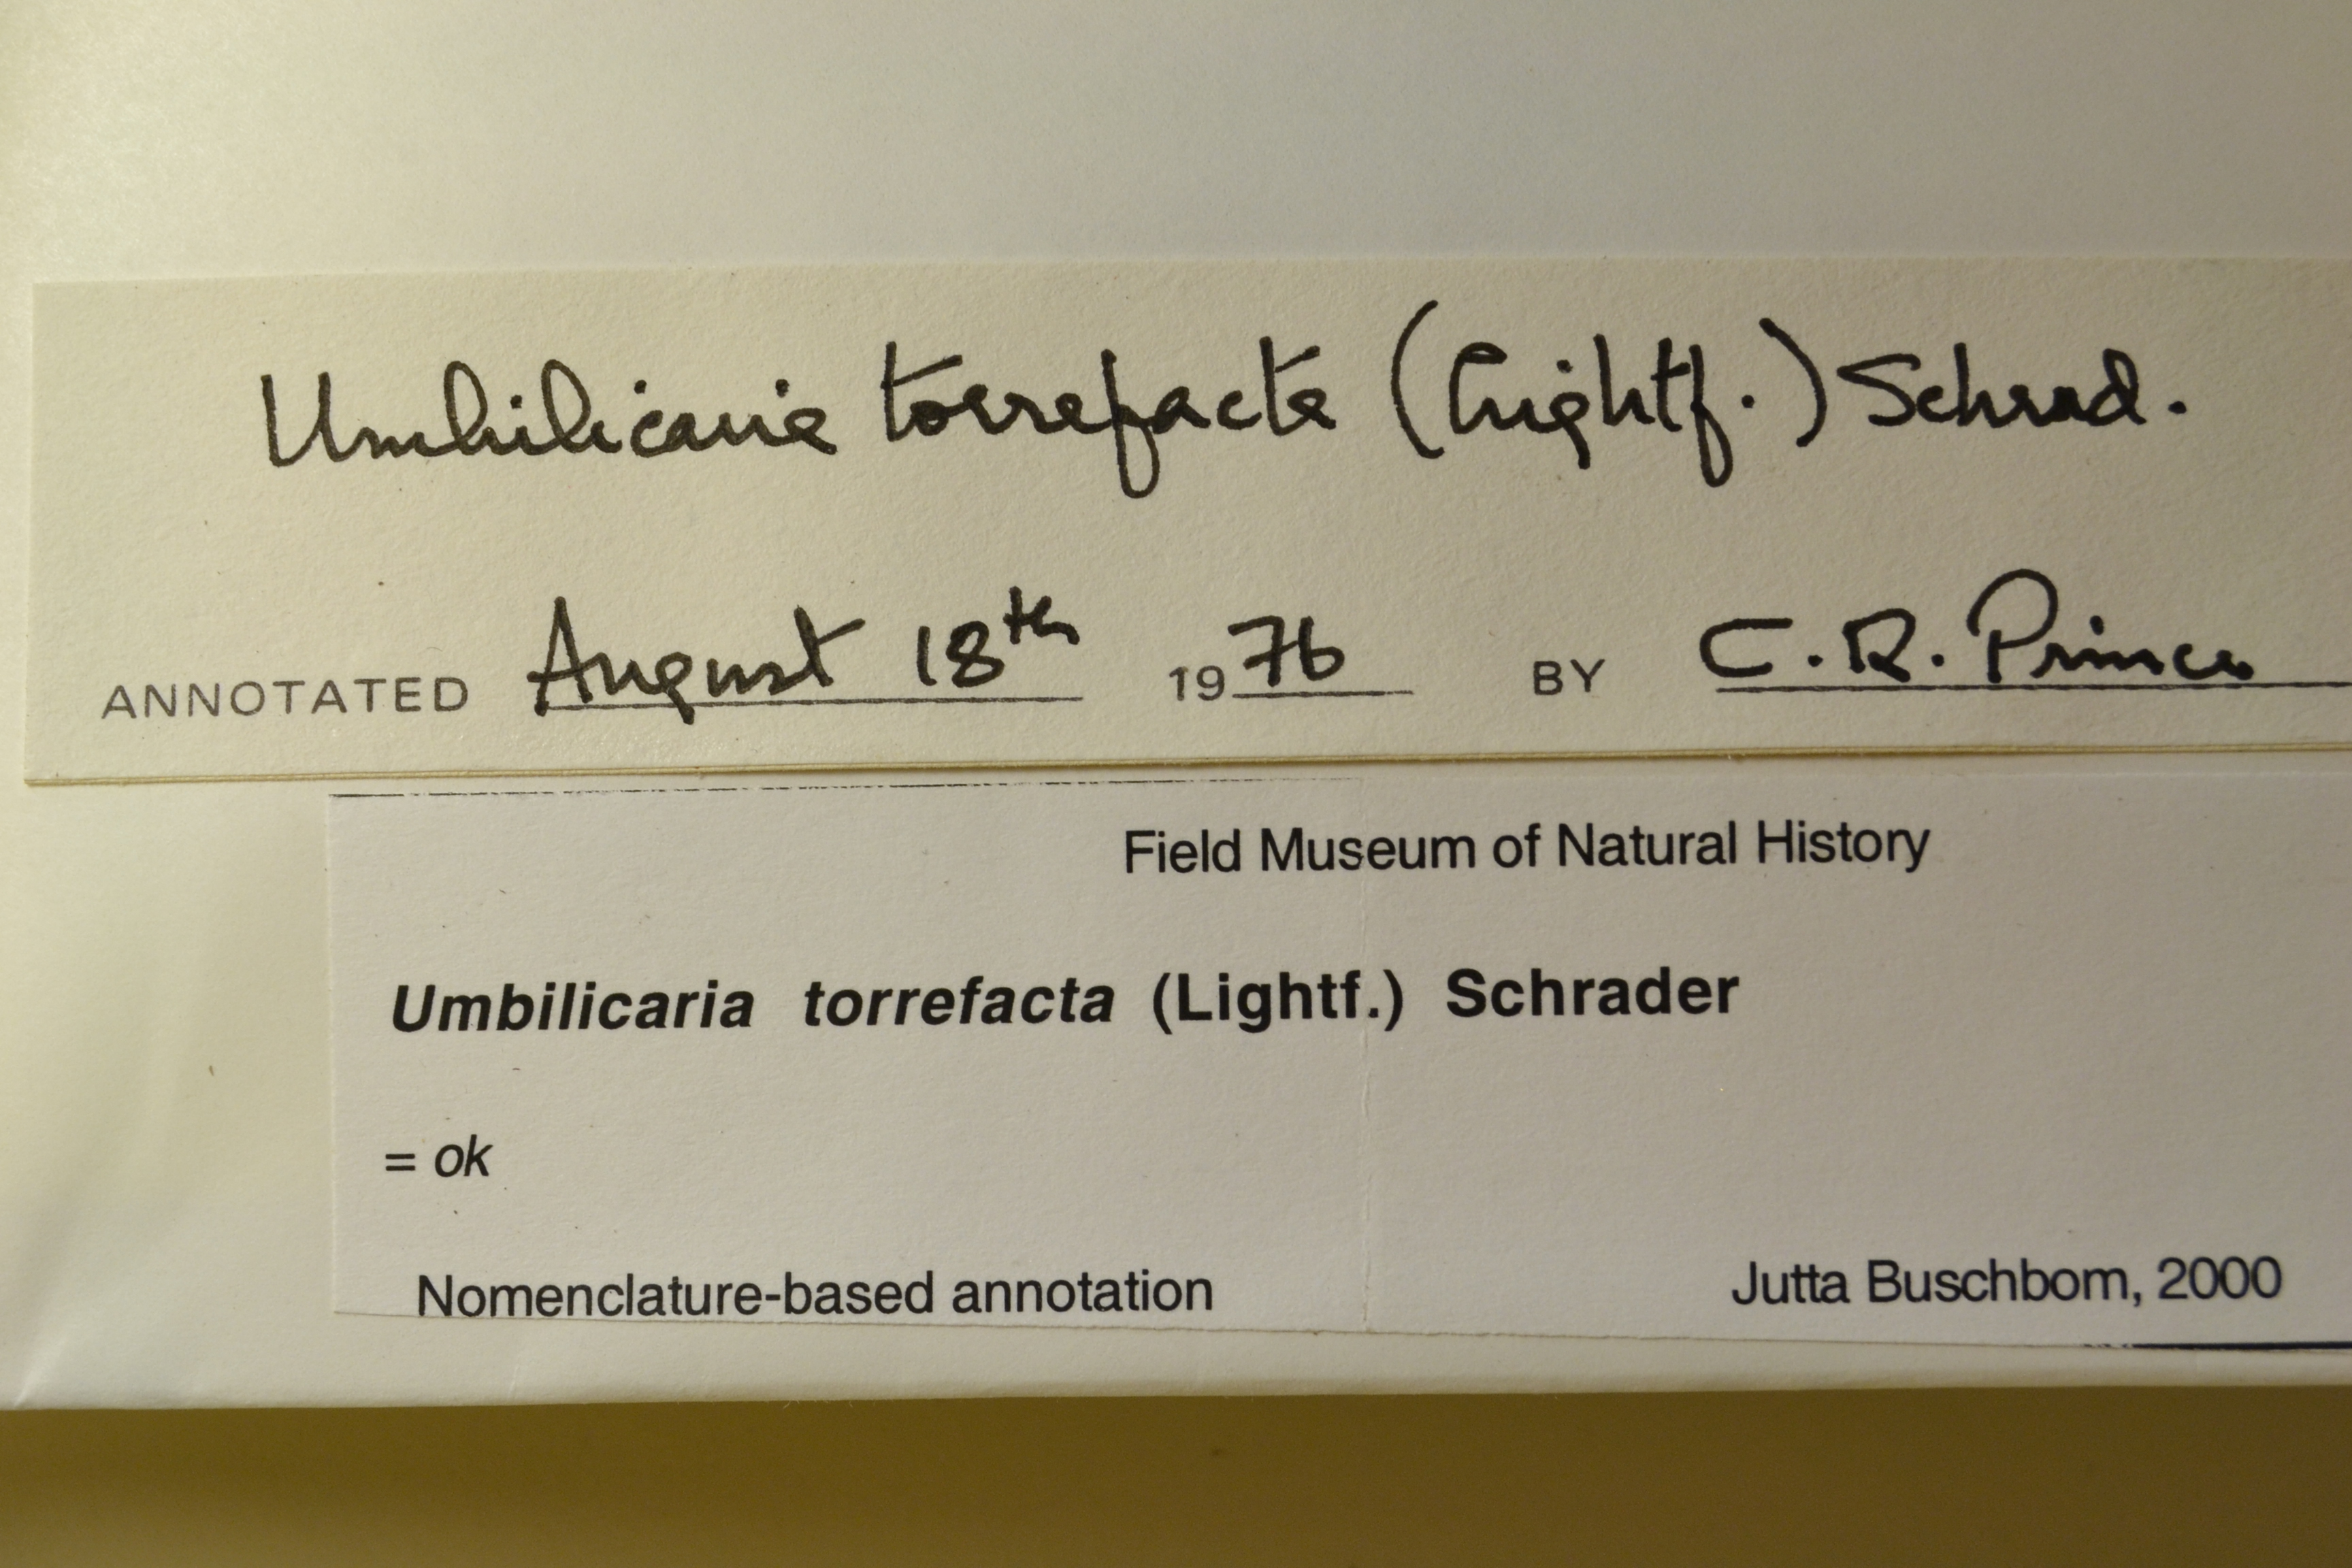 Umbilicaria torrefacta (Lightf.) Schrad.
ANNOTATED August 18th 1976 BY C.R. Prince
Field Museum of Natural History
Umbilicaria torrefacta (Lightf.) Schrader
= ok
Nomenclature-based annotation Jutta Buschbom, 2000